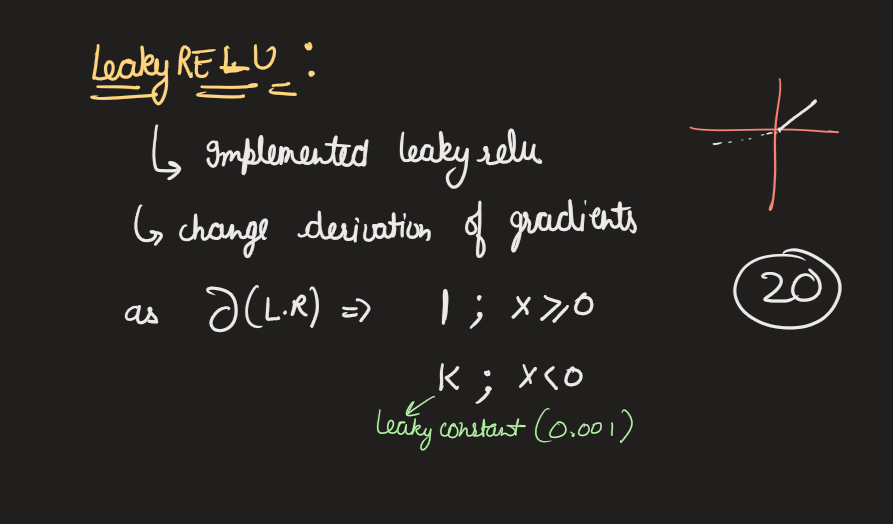 Leaky RELU :
↳ Implemented leaky relu
↳ change derivation of gradients
20
as ∂(L.R) => 1 ; x ≥ 0
K ; x < 0
leaky constant (0.001)